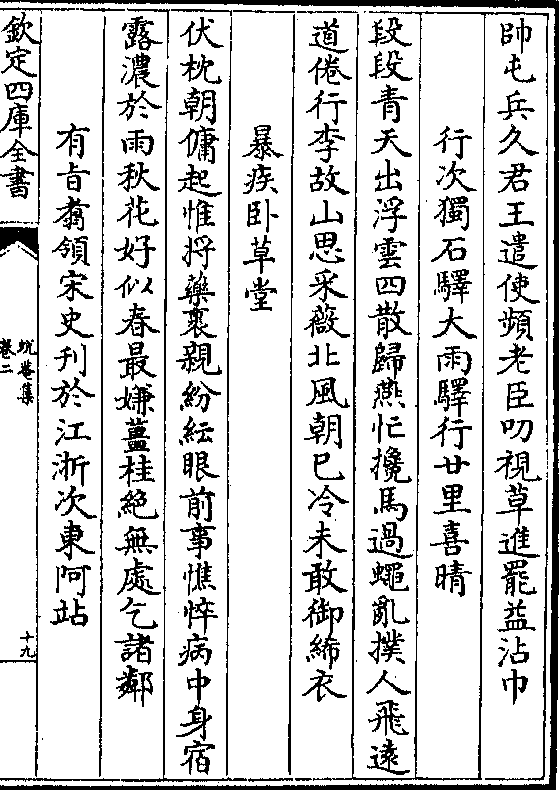 帥屯兵久君王遣使頻老臣叨視草進罷益沾巾
行次獨石驛大雨驛行廿里喜晴
段段青天出浮雲四散歸燕忙攙馬過蠅亂撲人飛遠
道倦行李故山思采薇北風朝已冷未敢御絺衣
暴疾卧草堂
伏枕朝慵起惟将藥裹親紛紜眼前事憔悴病中身宿
露濃於雨秋花好似春最嫌薑桂絶無處乞諸鄰
有旨翥領宋史刊於江浙次東阿站
欽定四庫全書
蛻菴集
卷二
十九